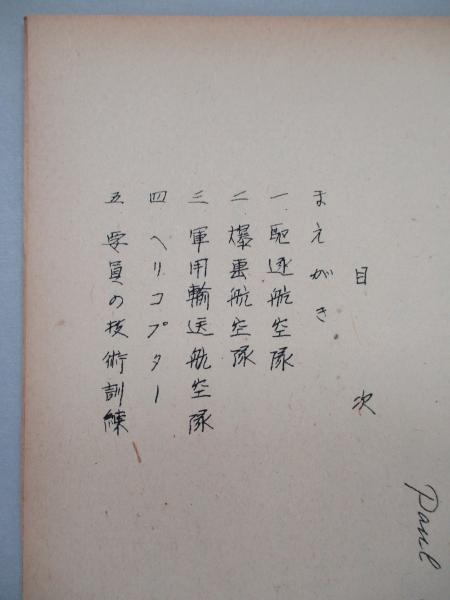 目次
まえがき
一 駆逐航空隊
二 爆撃航空隊
三 軍用輸送航空隊
四 ヘリコプター
五 要員の技術訓練
Paul